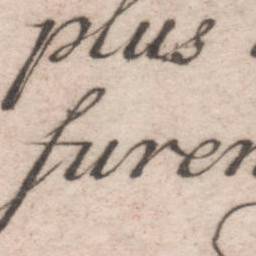 plus
furen